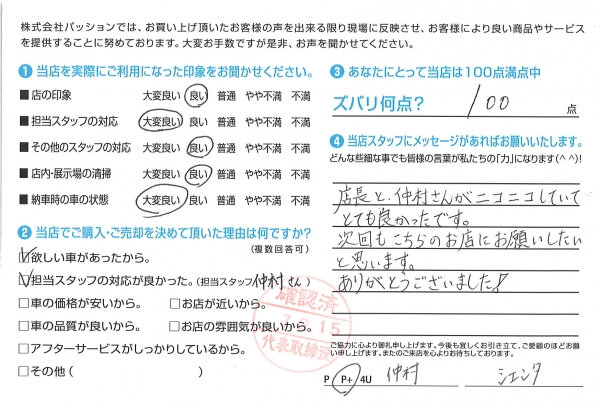 株式会社パッションでは、お買い上げ頂いたお客様の声を出来る限り現場に反映させ、お客様により良い商品やサービス
を提供することに努めております。大変お手数ですが是非、お声を聞かせてください。
❶ 当店を実際にご利用になった印象をお聞かせください。
■ 店の印象 大変良い 良い 普通 やや不満 不満
■ 担当スタッフの対応 大変良い 良い 普通 やや不満 不満
■ その他のスタッフの対応 大変良い 良い 普通 やや不満 不満
■ 店内・展示場の清掃 大変良い 良い 普通 やや不満 不満
■ 納車時の車の状態 大変良い 良い 普通 やや不満 不満
❷ 当店でご購入・ご売却を決めて頂いた理由は何ですか?
(複数回答可)
欲しい車があったから。
担当スタッフの対応が良かった。(担当スタッフ 仲村さん)
□車の価格が安いから。 □お店が近いから。
□車の品質が良いから。 □お店の雰囲気が良いから。
□アフターサービスがしっかりしているから。
□その他( )
確認済
7.2.15
代表取締役
❸ あなたにとって当店は100点満点中
ズバリ何点? 100 点
❹ 当店スタッフにメッセージがあればお願いいたします。
どんな些細な事でも皆様の言葉が私たちの「力」になります(^ ^)!
店長と、仲村さんがニコニコしていて
とても良かったです。
次回もこちらのお店にお願いしたい
と思います。
ありがとうございました!
ご協力に心より御礼申し上げます。今後も宜しくお引き立て、ご愛顧のほどお願
い申し上げます。またのご来店を心よりお待ちしております。
P P+ 4U 仲村 シエンタ